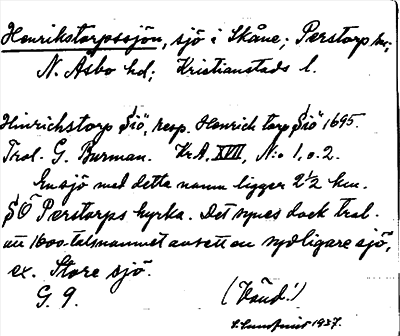 Henrikstorpssjön, sjö i Skåne; Perstorp sn;
N. Åsbo hd; Kristianstads l.
Hinrichstorp Siö, resp. Henrich torp Siö 1695.
Trol. G. Burman. Kr.A. XVII, N:o 1, o. 2.
En sjö med detta namn ligger 2½ km.
SÖ Perstorps kyrka. Det synes dock trol.
att 1600-talsnamnet avsett en sydligare sjö,
ex. Store sjö.
G. 9. (Händ!)
1937.